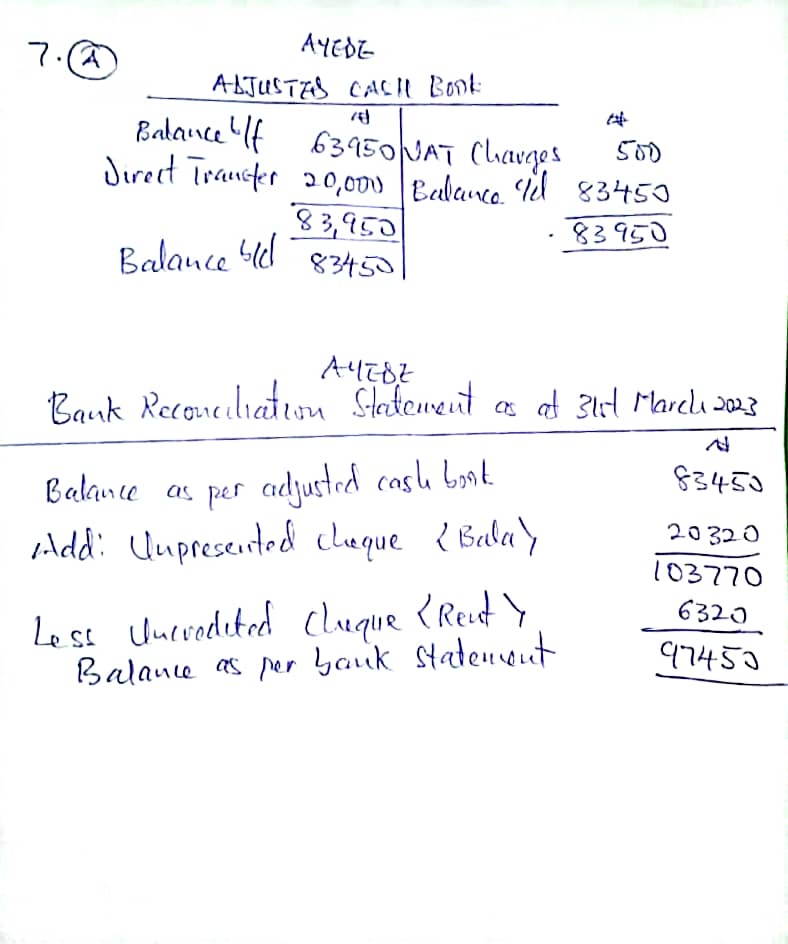 7. (A) AYEDE
ADJUSTED CASH Book
₦ ₦
Balance b/f 63950 VAT Charges 500
Direct Transfer 20,000 Balance c/d 83450
83,950 83950
Balance b/d 83450
AYEDE
Bank Reconciliation Statement as at 31st March 2023
₦
Balance as per adjusted cash book 83450
Add: Unpresented cheque {Bala} 20320
103770
Less Uncredited Cheque {Rent} 6320
Balance as per bank Statement 97450